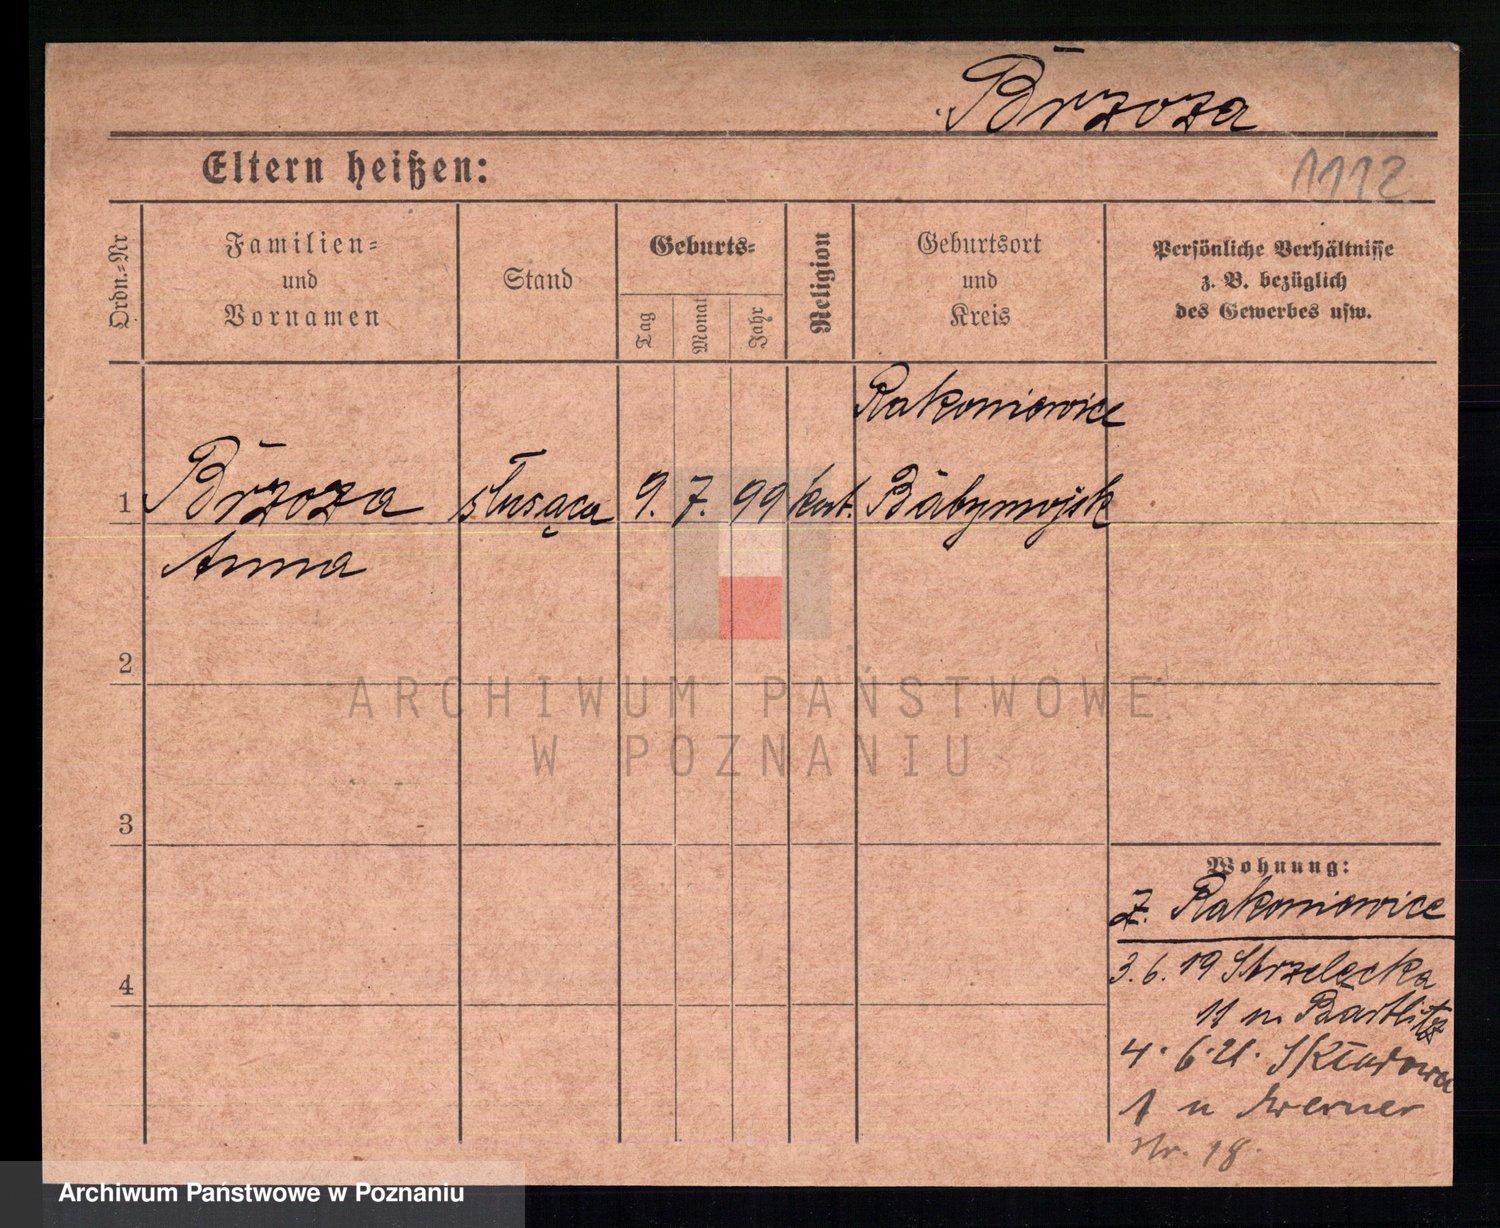 Brzoza
Eltern heißen:
1112
Ordn.=Nr
Familien=
und
Vornamen
Stand
Geburts=
Tag
Monat
Jahr
Religion
Geburtsort
und
Kreis
Persönliche Verhältnisse
z. B. bezüglich
des Gewerbes usw.
Rakoniewice
1 Brzoza słusąca 9. 7. 99 kat. Babymojsk
Anna
2
ARCHIWUM PAŃSTWOWE
W POZNANIU
3
Wohnung:
Z. Rakoniewice
3. 6. 19 Strzelecka
4
11 u Bartlitz
4. 6. 21. Składowa
1 u Werner
Nr. 18.
Archiwum Państwowe w Poznaniu